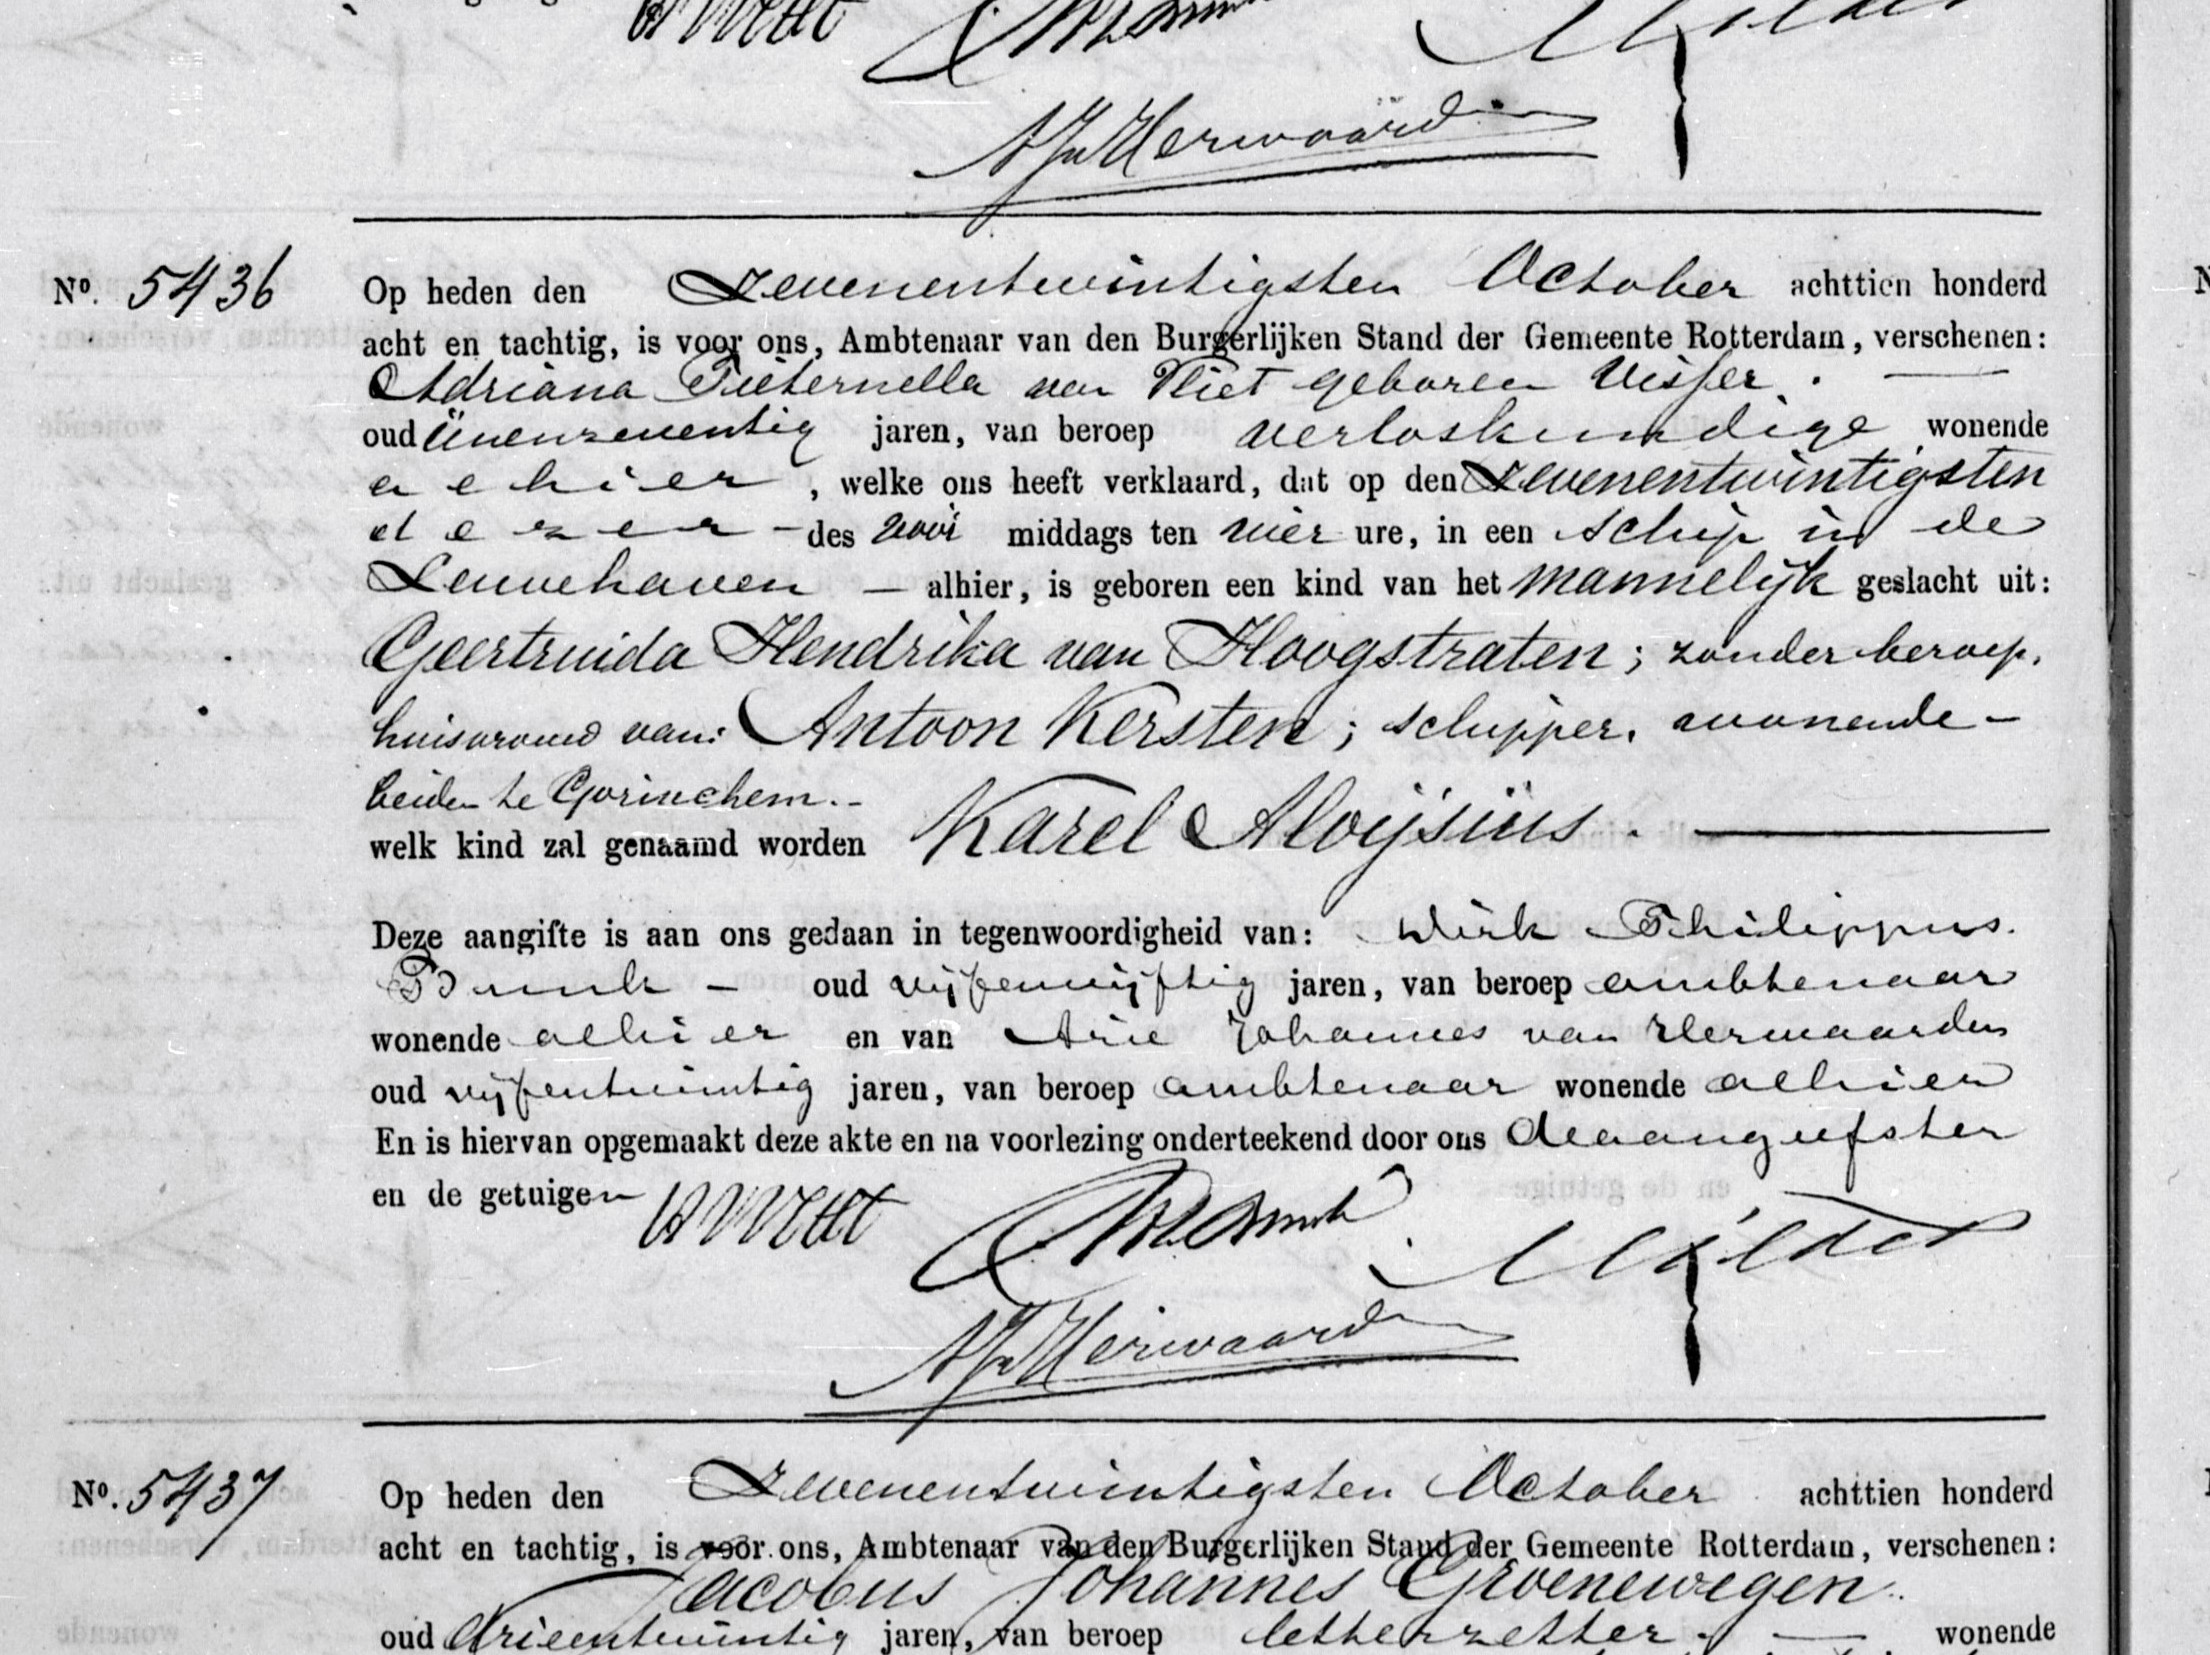 No. 5436
Op heden den Zevenentwintigsten October achttien honderd
acht en tachtig, is voor ons, Ambtenaar van den Burgerlijken Stand der Gemeente Rotterdam, verschenen:
Adriana Pieternella van Vliet geboren Visser.
oud eenenzeventig jaren, van beroep verloskundige wonende
alhier, welke ons heeft verklaard, dat op den Zevenentwintigsten
dezer - des voor middags ten vier ure, in een schip in de
Leuvehaven — alhier, is geboren een kind van het mannelijk geslacht uit:
Geertruida Hendrika van Hoogstraten; zonder beroep,
huisvrouw van: Antoon Kersten; schipper, wonende -
beiden te Gorinchem.-
welk kind zal genaamd worden Karel Aloijsius.
Deze aangifte is aan ons gedaan in tegenwoordigheid van: Dirk Philippus.
Bunk - oud vijfenvijftig jaren, van beroep ambtenaar
wonende alhier en van Arie Johannes van Herwaarden
oud vijfentwintig jaren, van beroep ambtenaar wonende alhier
En is hiervan opgemaakt deze akte en na voorlezing onderteekend door ons de aangeefster
en de getuigen
AJvHerwaarden
No. 5437
Op heden den Zevenentwintigsten October achttien honderd
acht en tachtig, is voor ons, Ambtenaar van den Burgerlijken Stand der Gemeente Rotterdam, verschenen:
Jacobus Johannes Groenewegen.
oud drieentwintig jaren, van beroep letterzetter. — wonende